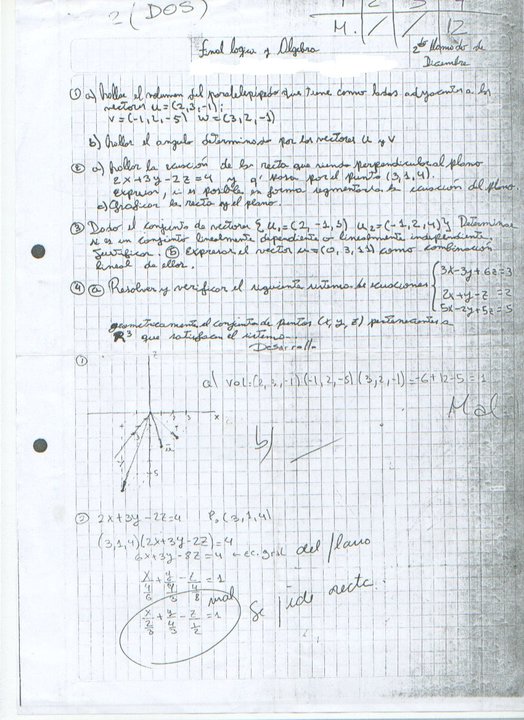 2 (DOS)
1 2 3 4
M. 12
Final Logica y Algebra
2do llamado de
Diciembre
① a) hallar el volumen del paralelepipedo que tiene como lados adyacentes a los
vectores u=(2,3,-1);
v=(-1,2,-5) w=(3,2,-1)
b) hallar el angulo determinado por los vectores u y v
② a) hallar la ecuación de la recta que siendo perpendicular al plano
2x+3y-2z=4 y q' pasa por el punto (3,1,4).
expresar, si es posible en forma segmentaria la ecuación del plano.
b) Graficar la recta y el plano.
③ Dado el conjunto de vectores {u1=(2,-1,5) u2=(-1,2,4)} Determinar
si es un conjunto linealmente dependiente o linealmente independiente
Justificar. ⓑ Expresar el vector u=(0,3,11) como combinación
lineal de ellos.
④ ⓐ Resolver y verificar el siguiente sistema de ecuaciones
3x-3y+6z=3
2x+y-z=2
5x-2y+5z=5
geometricamente el conjunto de puntos (x,y,z) pertenecientes a
R3 que satisfacen el sistema
Desarrollo
①
z
x
a) vol=(2,3,-1)(-1,2,-5)(3,2,-1)=-6+12-5=1
Mal
b)
② 2x+3y-2z=4 P0(3,1,4)
(3,1,4)(2x+3y-2z)=4
6x+3y-8z=4 ←ec. gral del plano
mal
Se pide recta.